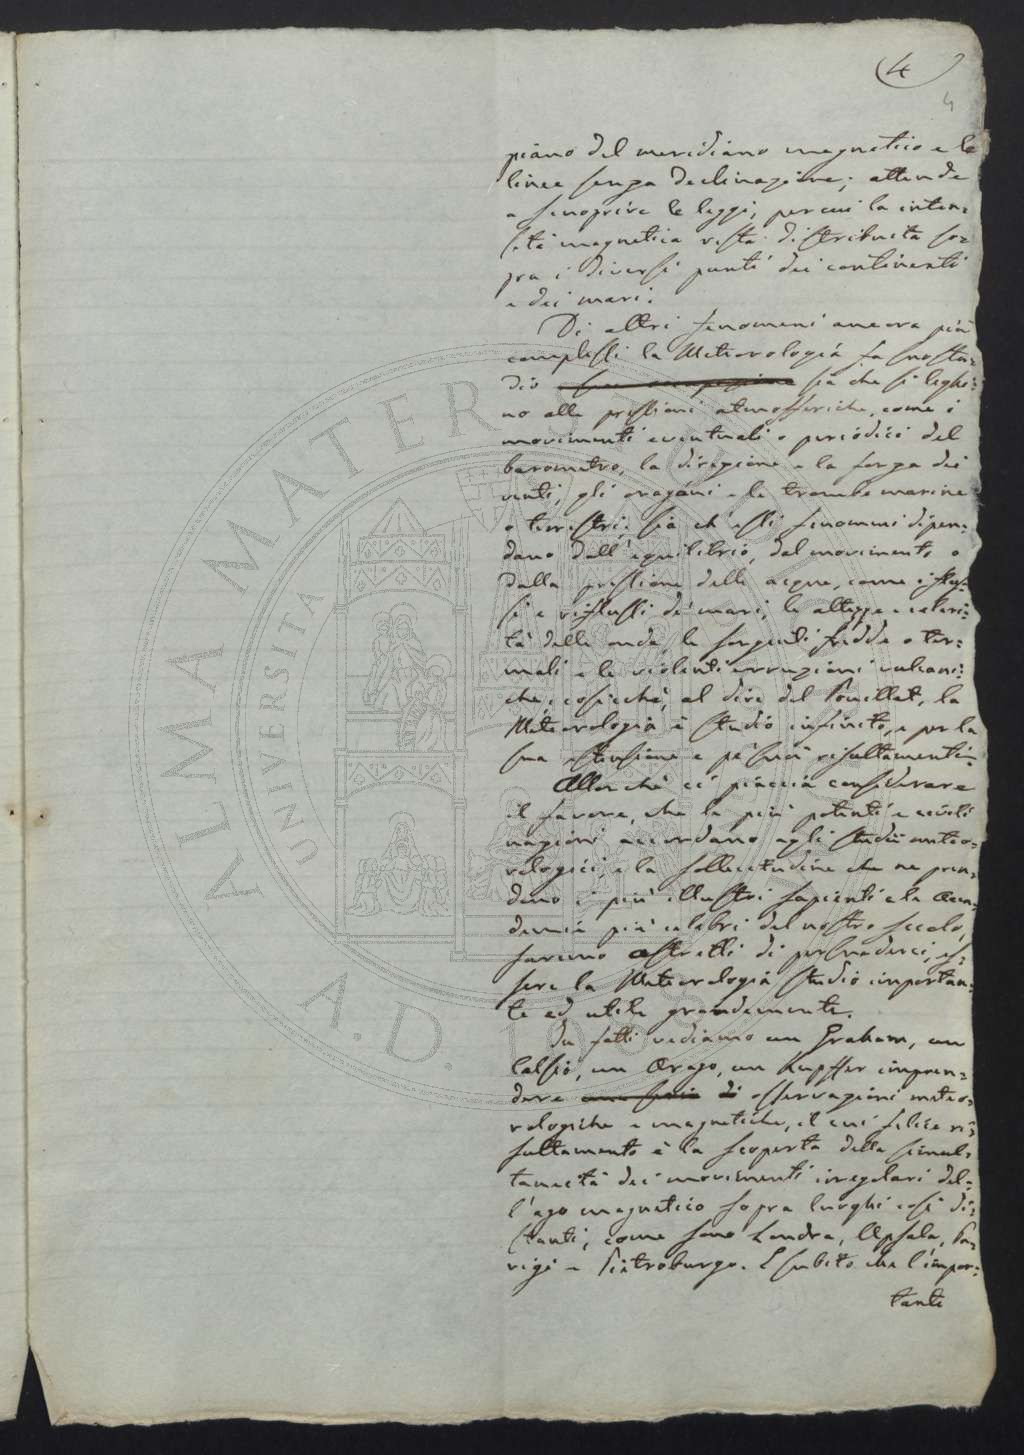 4
4
piano del meridiano magnetico e le
linee senza declinazione; attende
a scoprire le leggi, per cui la inten=
sità magnetica resta distribuita so=
pra i diversi punti dei continenti
e dei mari.
Di altri fenomeni ancora più
complessi la Meteorologia fa suo stu=
dio sia che si leghi=
no alle pressioni atmosferiche, come i
movimenti eventuali o periodici del
barometro, la direzione e la forza dei
venti, gli oragani e le trombe marine
o terrestri; sia ch'essi fenomeni dipen=
dano dall'equilibrio, dal movimento o
dalla pressione delle acque, come i flus=
si e riflussi de' mari, le altezze e celeri=
tà delle onde, le sorgenti fredde o ter=
mali e le violenti erruzioni vulcani=
che; cosicchè, al dire del Pouillet, la
Meteorologia è studio infinito, e per la
sua estensione e pe' suoi risultamenti.
Allorchè ci piaccia considerare
il favore, che le più potenti e civili
nazioni accordano agli studii meteo=
rologici, e la sollecitudine che ne pren=
dono i più illustri sapienti e le Acca=
demie più celebri del nostro secolo,
saremo astretti di persuaderci, es=
sere la Meteorologia studio importan=
te ed utile grandemente.
Di fatti vediamo un Graham, un
Celsio, un Arago, un Kupffer impren=
dere una serie di osservazioni meteo=
rologiche e magnetiche, il cui felice ri=
sultamento è la scoperta della simul=
taneità dei movimenti irregolari del=
l'ago magnetico sopra luoghi così di=
stanti, come sono Londra, Upsala, Pa=
rigi e Pietroburgo. E subito che l'impor=
tante
ALMA MATER STUDIORUM
UNIVERSITA
A.D. 1088